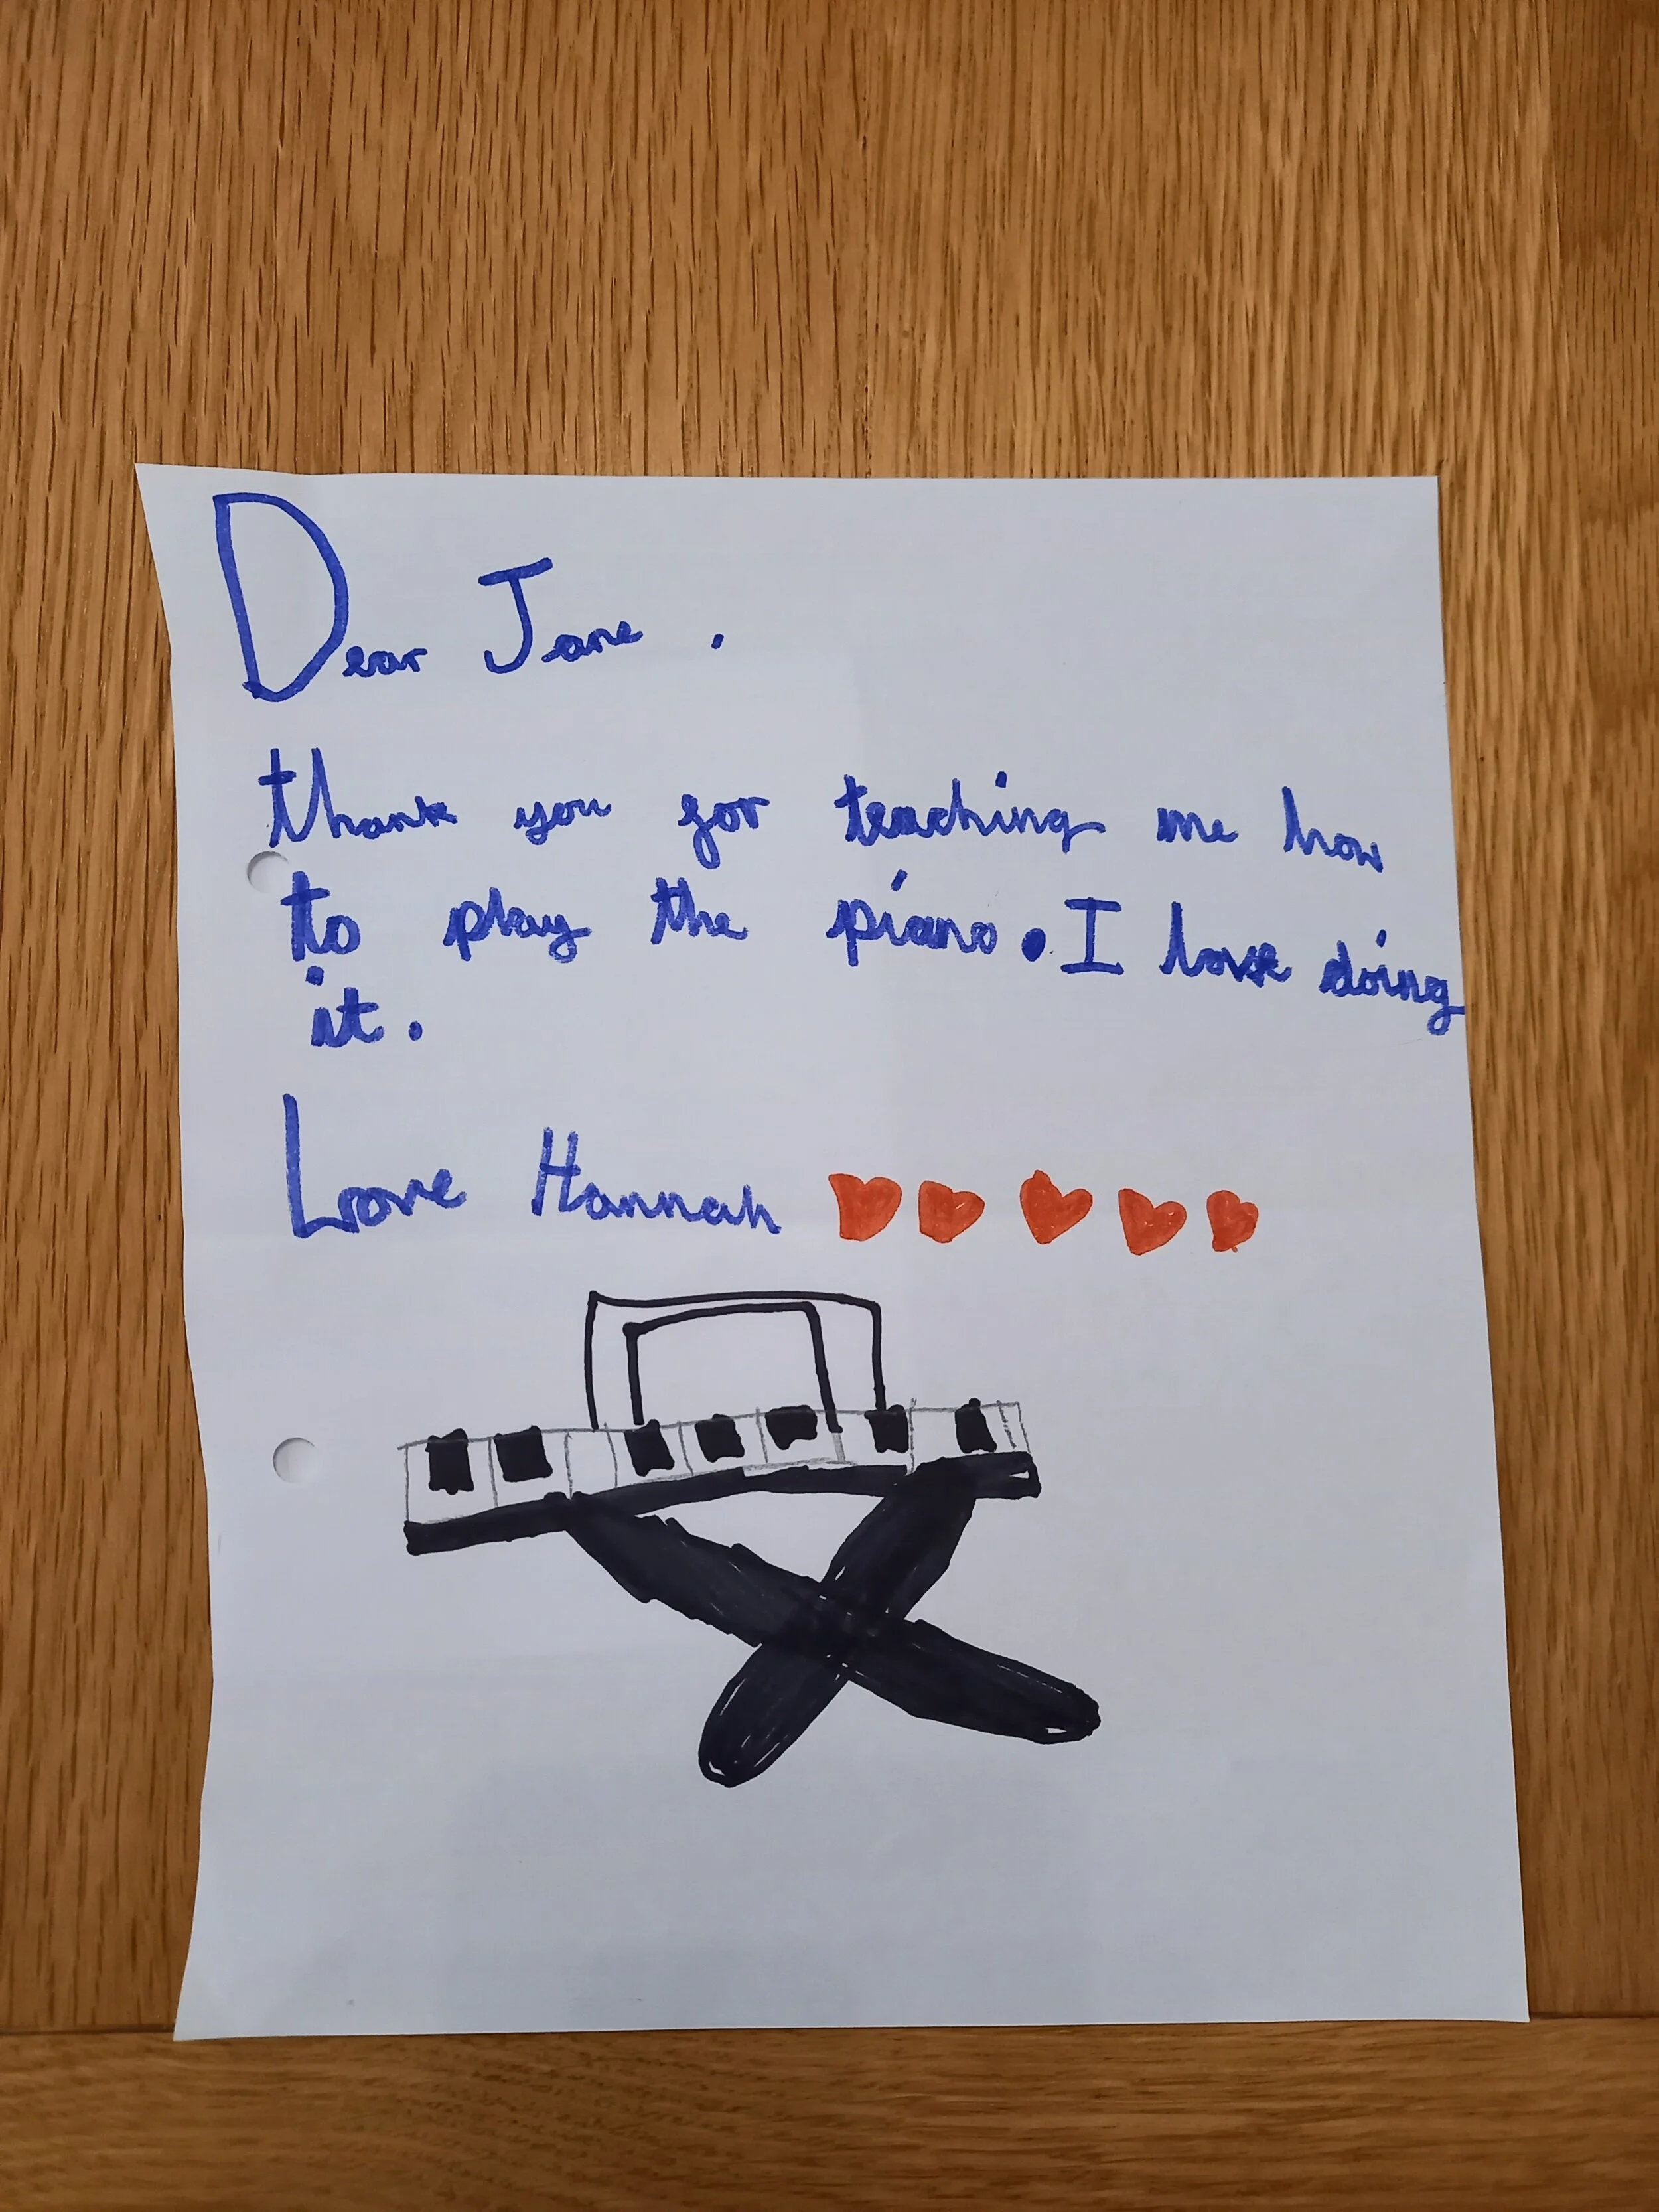 Dear Jane .
thank you for teaching me how
to play the piano. I love doing
it.
Love Hannah